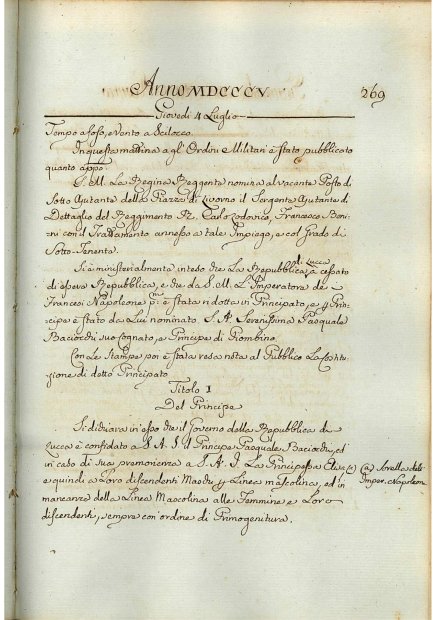 Anno MDCCCV.
269
Giovedi 4 Luglio
Tempo afoso, e Vento a Scilocco.
In questa mattina agl' Ordini Militari è stato pubblicato
quanto app.o
S. M. La Regina Reggente nomina al vacante Posto di
Sotto Ajutante della Piazza di Livorno il Sergente Ajutante di
Dettaglio del Reggimento Rl. Carlo Lodovico, Francesco Boni-
ni con il Trattamento annesso a tale Impiego, e col Grado di
Sotto-Tenente.
Si è ministerialmente inteso che La Repubblica di Lucca à cessato
di essere Repubblica, e che da S. M. L'Imperatore de'
Francesi Napoleone p.mo è stata ridotta in Principato, e p Prin-
cipe è stato da Lui nominato S. A. Serenissima Pasquale
Baciocchi suo Cognato, e Principe di Piombino.
Con Le Stampe poi è stata resa nota al Pubblico La Costitu-
zione di detto Principato
Titolo I
Del Principe
Si dichiara in esso che il Governo della Repubblica di
Lucca è confidato a S. A. S. il Principe Pasquale Baciocchi, ed
in caso di sua premorienza a S. A. I. La Principessa Elisa (a)
e quindi a Loro discendenti Maschi p Linea mascolina, ed in
mancanza della Linea Mascolina alle Femmine e Loro
discendenti, sempre con ordine di Primogenitura.
(a) Sorella dell'
Imper. Napoleon